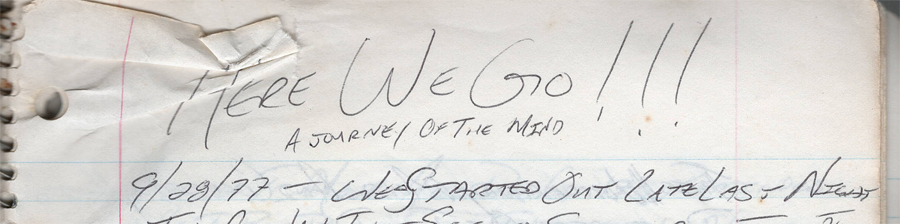 HERE WE GO!!!
A JOURNEY OF THE MIND
9/28/77 — WE STARTED OUT LATE LAST NIGHT